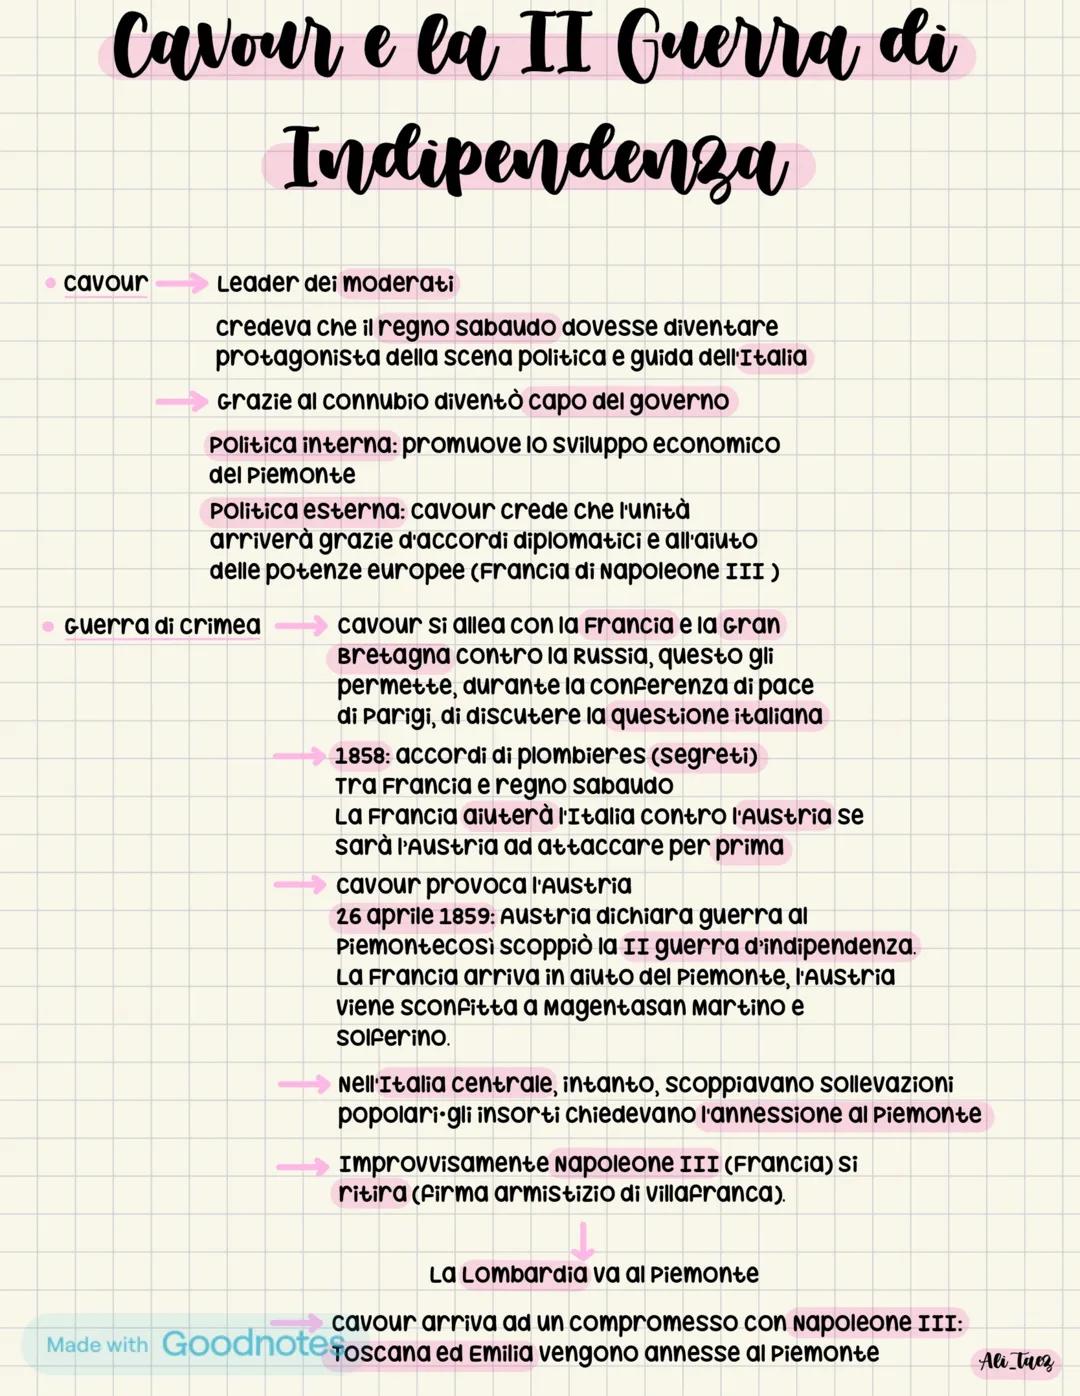 Cavour e la II Guerra di
Indipendenza
Cavour → Leader dei moderati
credeva che il regno sabaudo dovesse diventare
protagonista della scena politica e guida dell'Italia
→ Grazie al connubio diventò capo del governo
Politica interna: promuove lo sviluppo economico
del Piemonte
Politica esterna: cavour crede che l'unità
arriverà grazie d'accordi diplomatici e all'aiuto
delle potenze europee (Francia di Napoleone III )
Guerra di crimea → cavour si allea con la Francia e la Gran
Bretagna contro la Russia, questo gli
permette, durante la conferenza di pace
di Parigi, di discutere la questione italiana
→ 1858: accordi di plombieres (segreti)
Tra Francia e regno sabaudo
La Francia aiuterà l'Italia contro l'Austria se
sarà l'Austria ad attaccare per prima
→ cavour provoca l'Austria
26 aprile 1859: Austria dichiara guerra al
Piemontecosì scoppiò la II guerra d'indipendenza.
La Francia arriva in aiuto del Piemonte, l'Austria
viene sconfitta a Magentasan Martino e
solferino.
→ Nell'Italia centrale, intanto, scoppiavano sollevazioni
popolari•gli insorti chiedevano l'annessione al Piemonte
→ Improvvisamente Napoleone III (Francia) si
ritira (firma armistizio di villafranca).
↓
La Lombardia va al Piemonte
→ cavour arriva ad un compromesso con Napoleone III:
Toscana ed Emilia vengono annesse al Piemonte
Made with Goodnotes
Ali_Taez